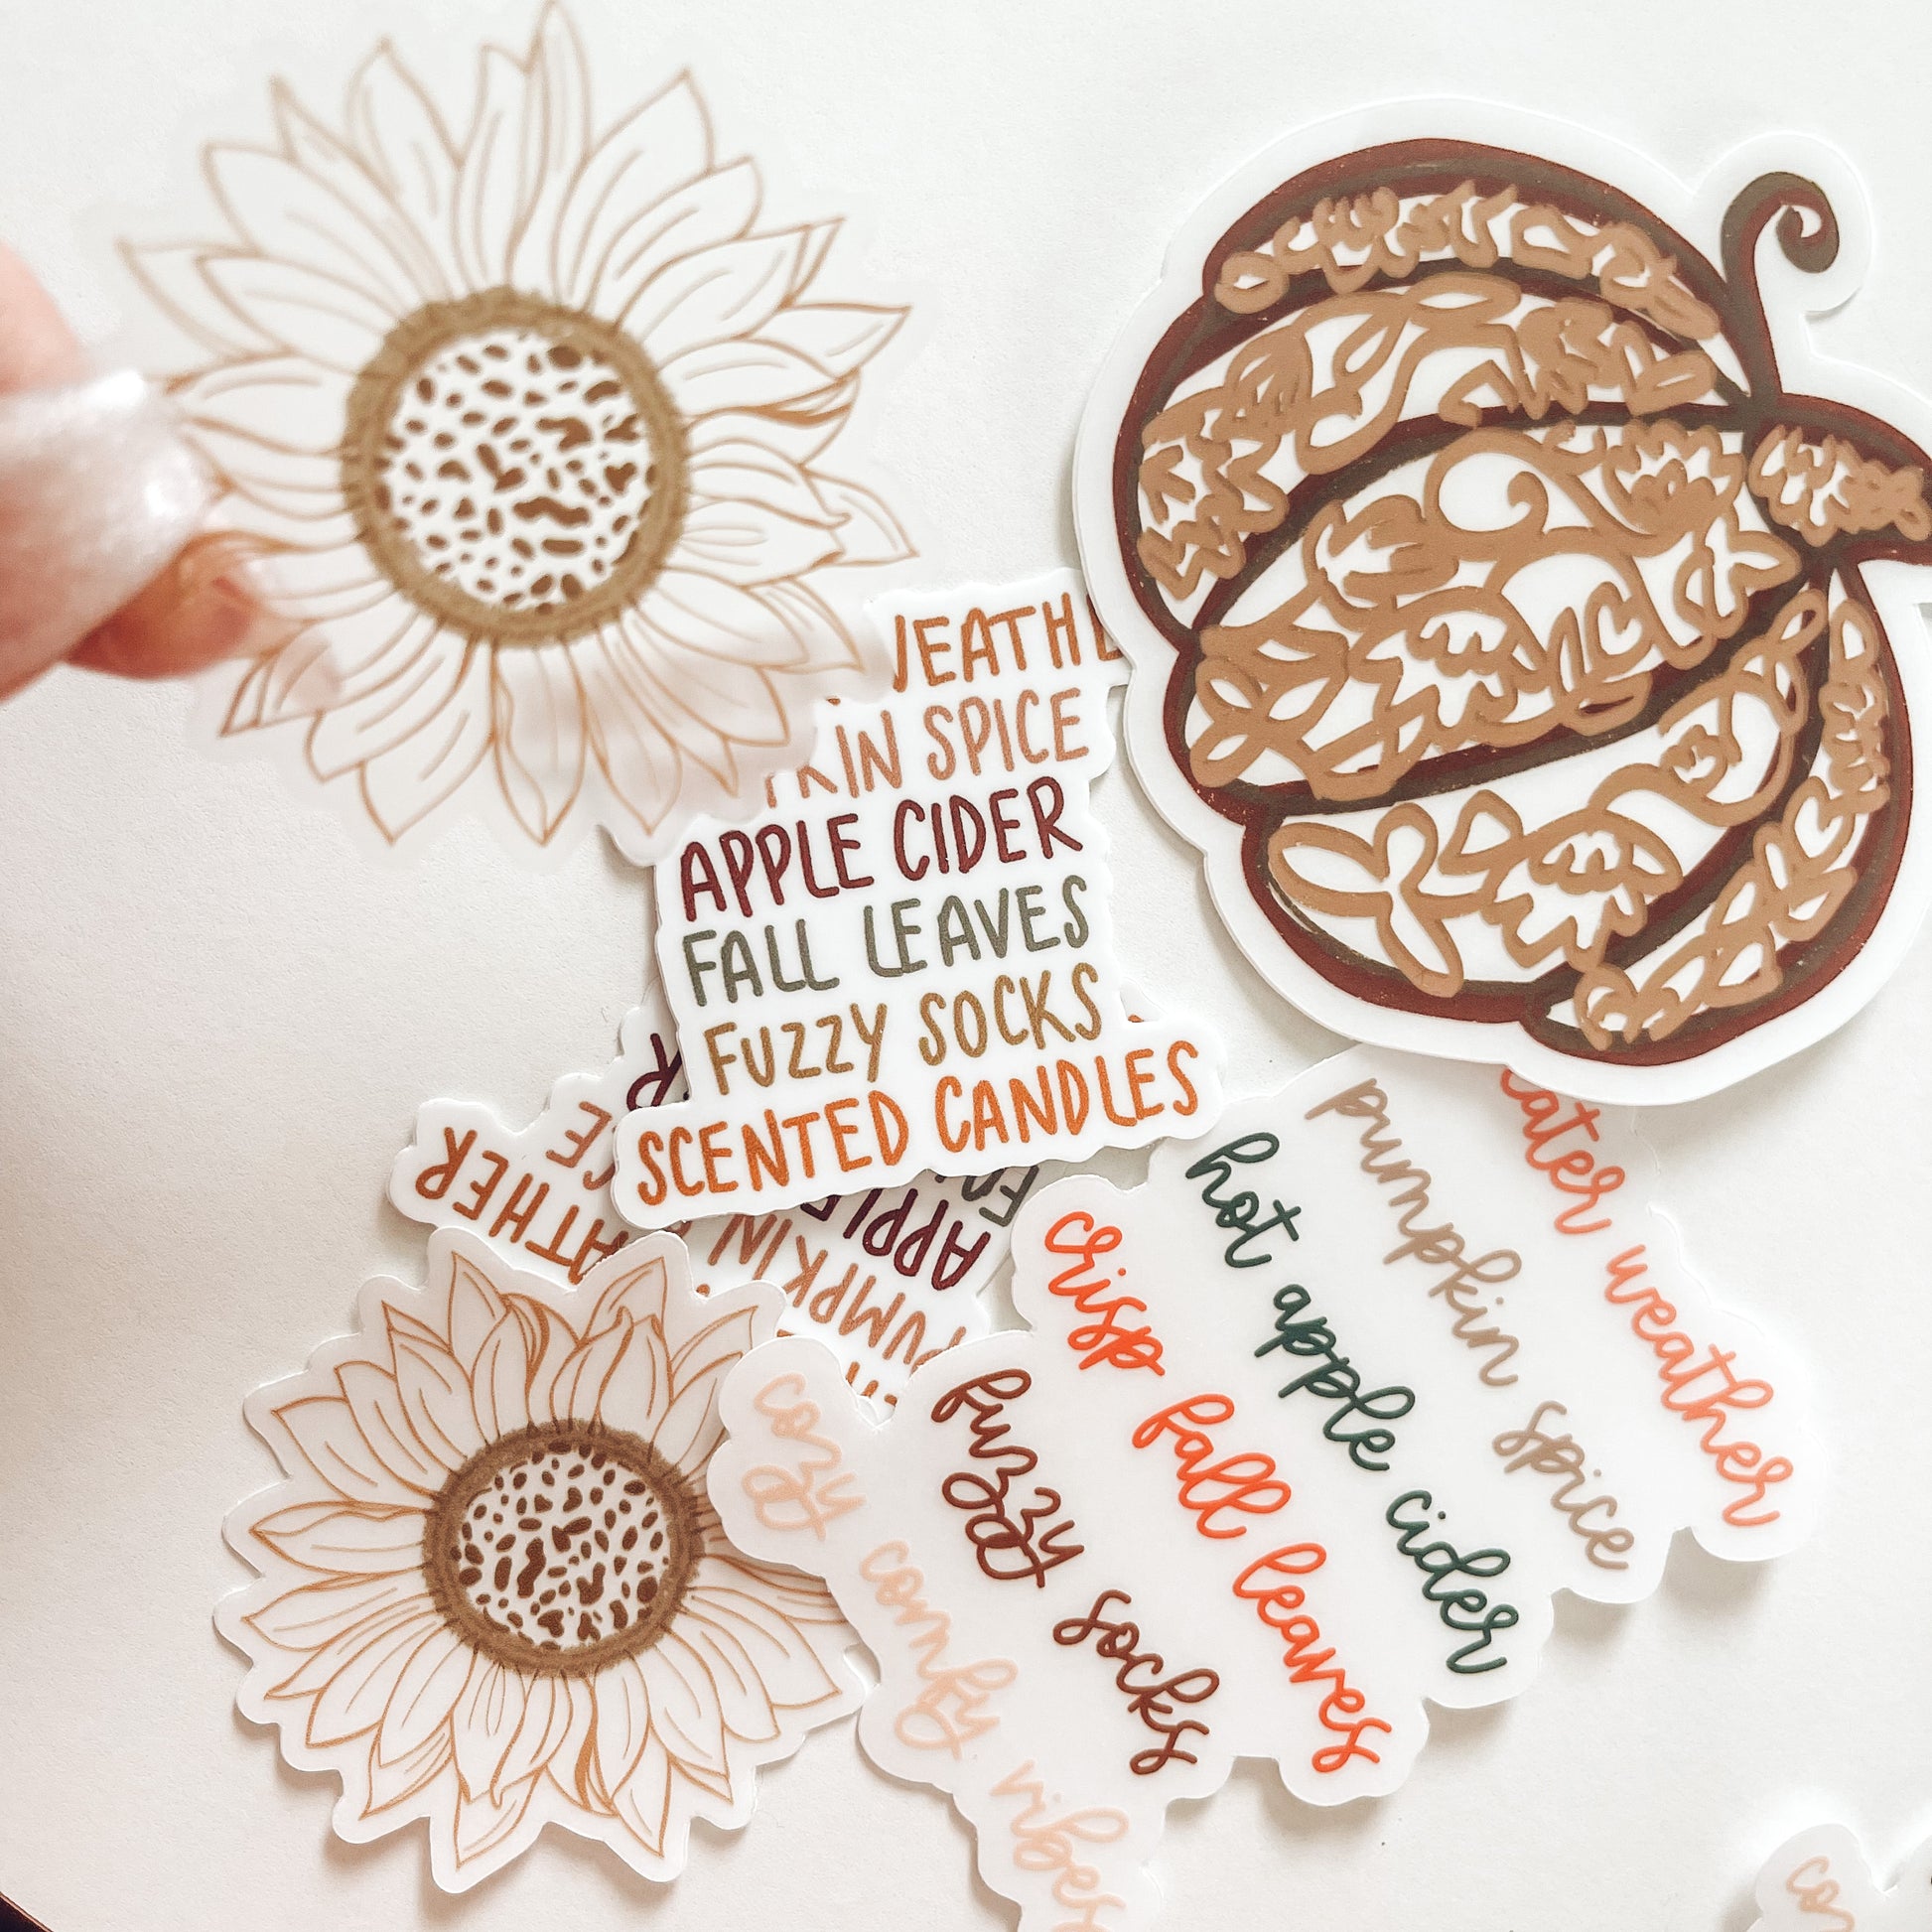 WEATHE
KIN SPICE
APPLE CIDER
FALL LEAVES
FUZZY SOCKS
SCENTED CANDLES
ATHER
PUMPKIN
CE
APPLE
R
eater weather
pumpkin spice
hot apple cider
crisp fall leaves
fuzzy socks
cozy comfy vibes
co